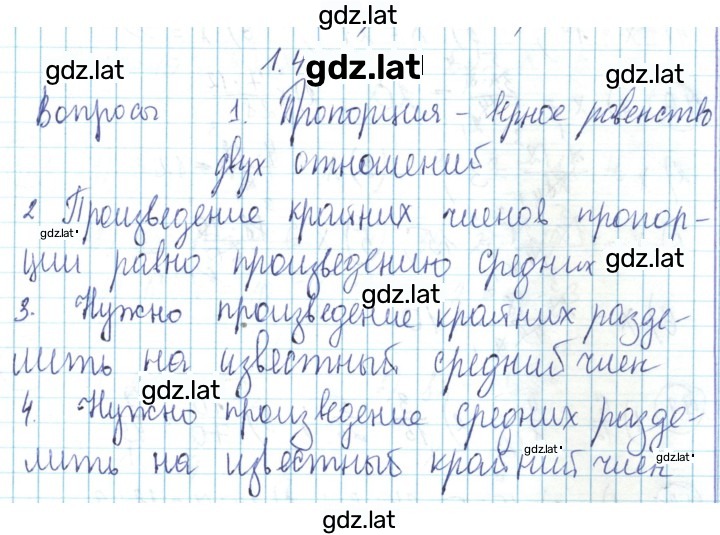 gdz.lat
1.4 gdz.lat
gdz.lat gdz.lat
Вопросы 1. Пропорция - верное равенство
двух отношений
2 Произведение крайних членов пропор-
gdz.lat
ции равно произведению средних gdz.lat
3. Нужно произведение крайних разде-
gdz.lat
лить на известный средний член
gdz.lat
4. Нужно произведение средних разде-
лить на известный крайний член
gdz.lat gdz.lat
gdz.lat